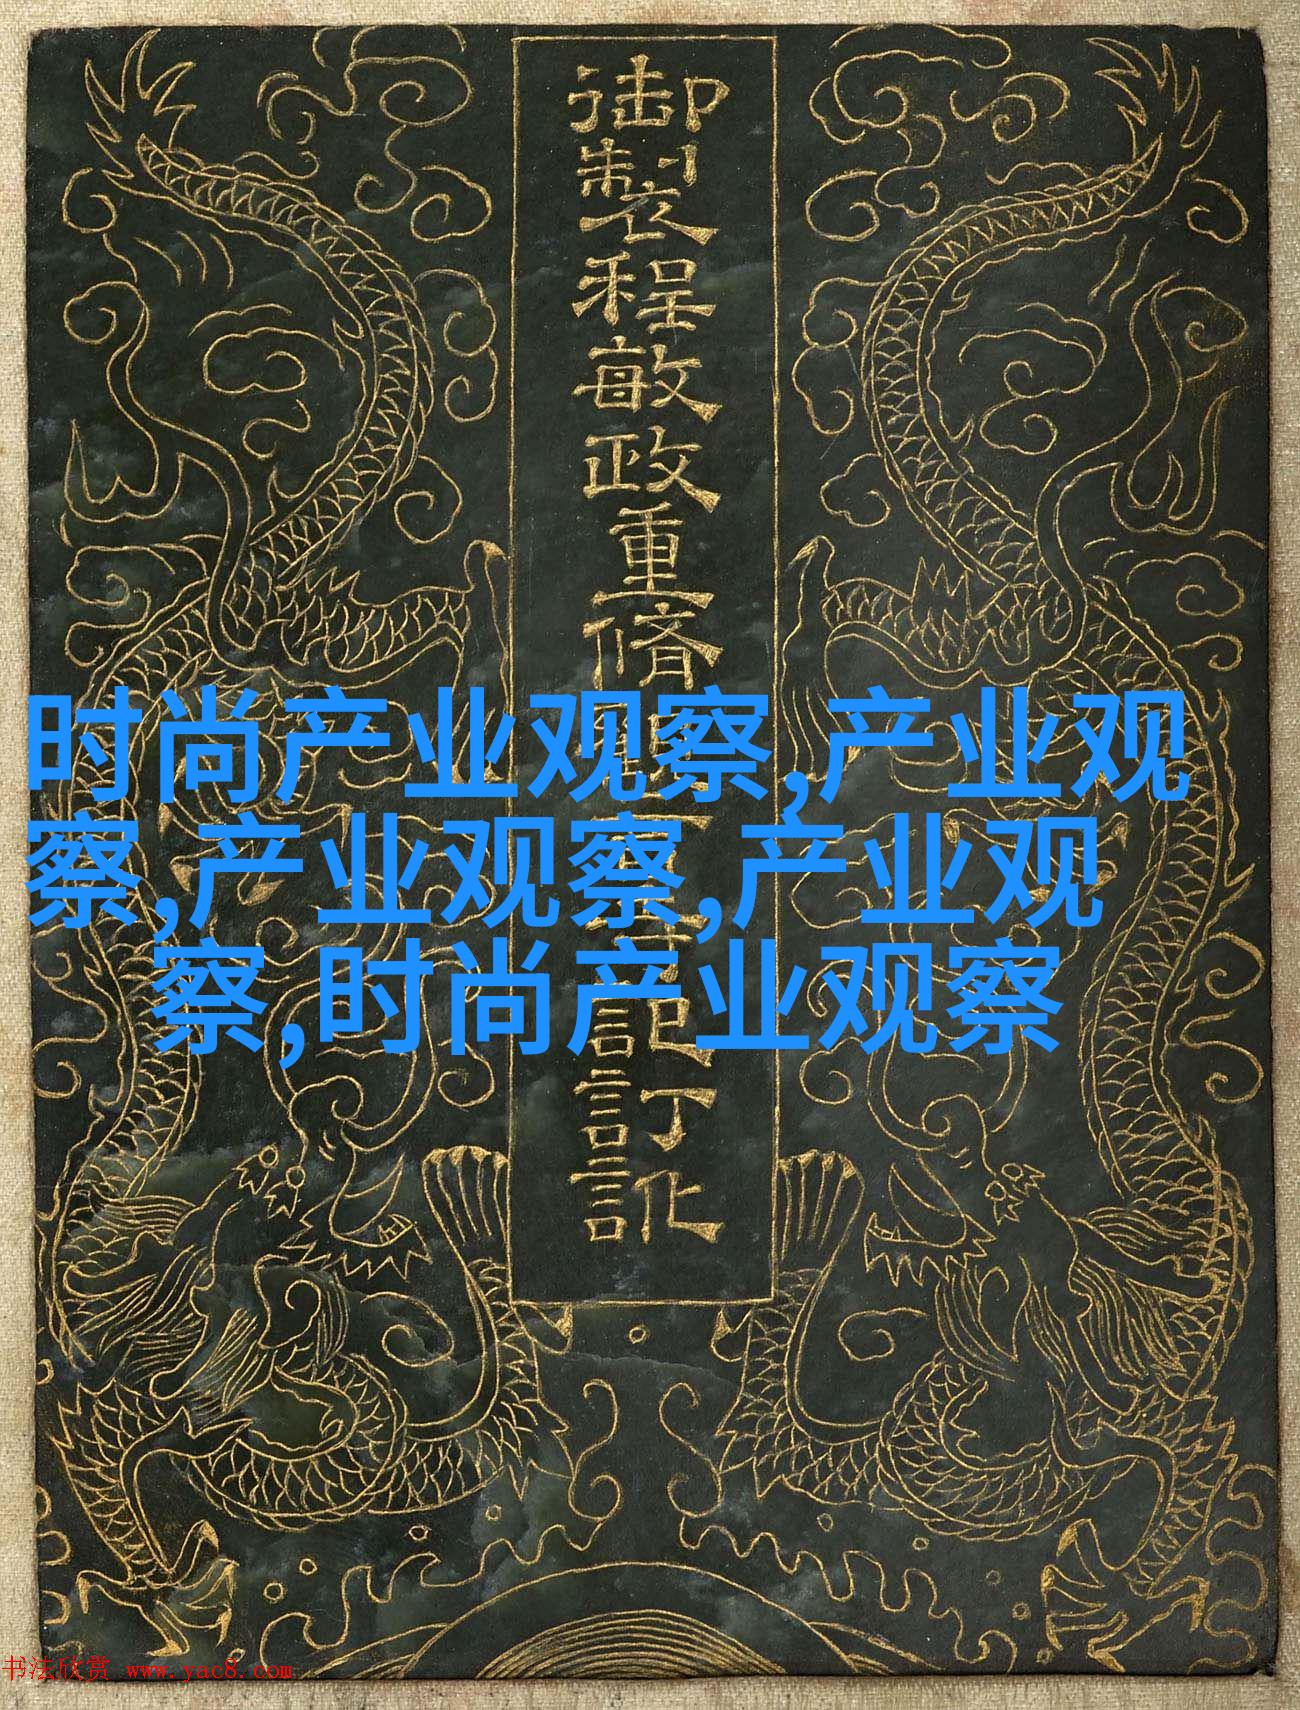 御製程敏政重脩
訂訛
时尚产业观察,产业观
察,产业观察,产业观
察,时尚产业观察
书法欣赏 www.yac8.com